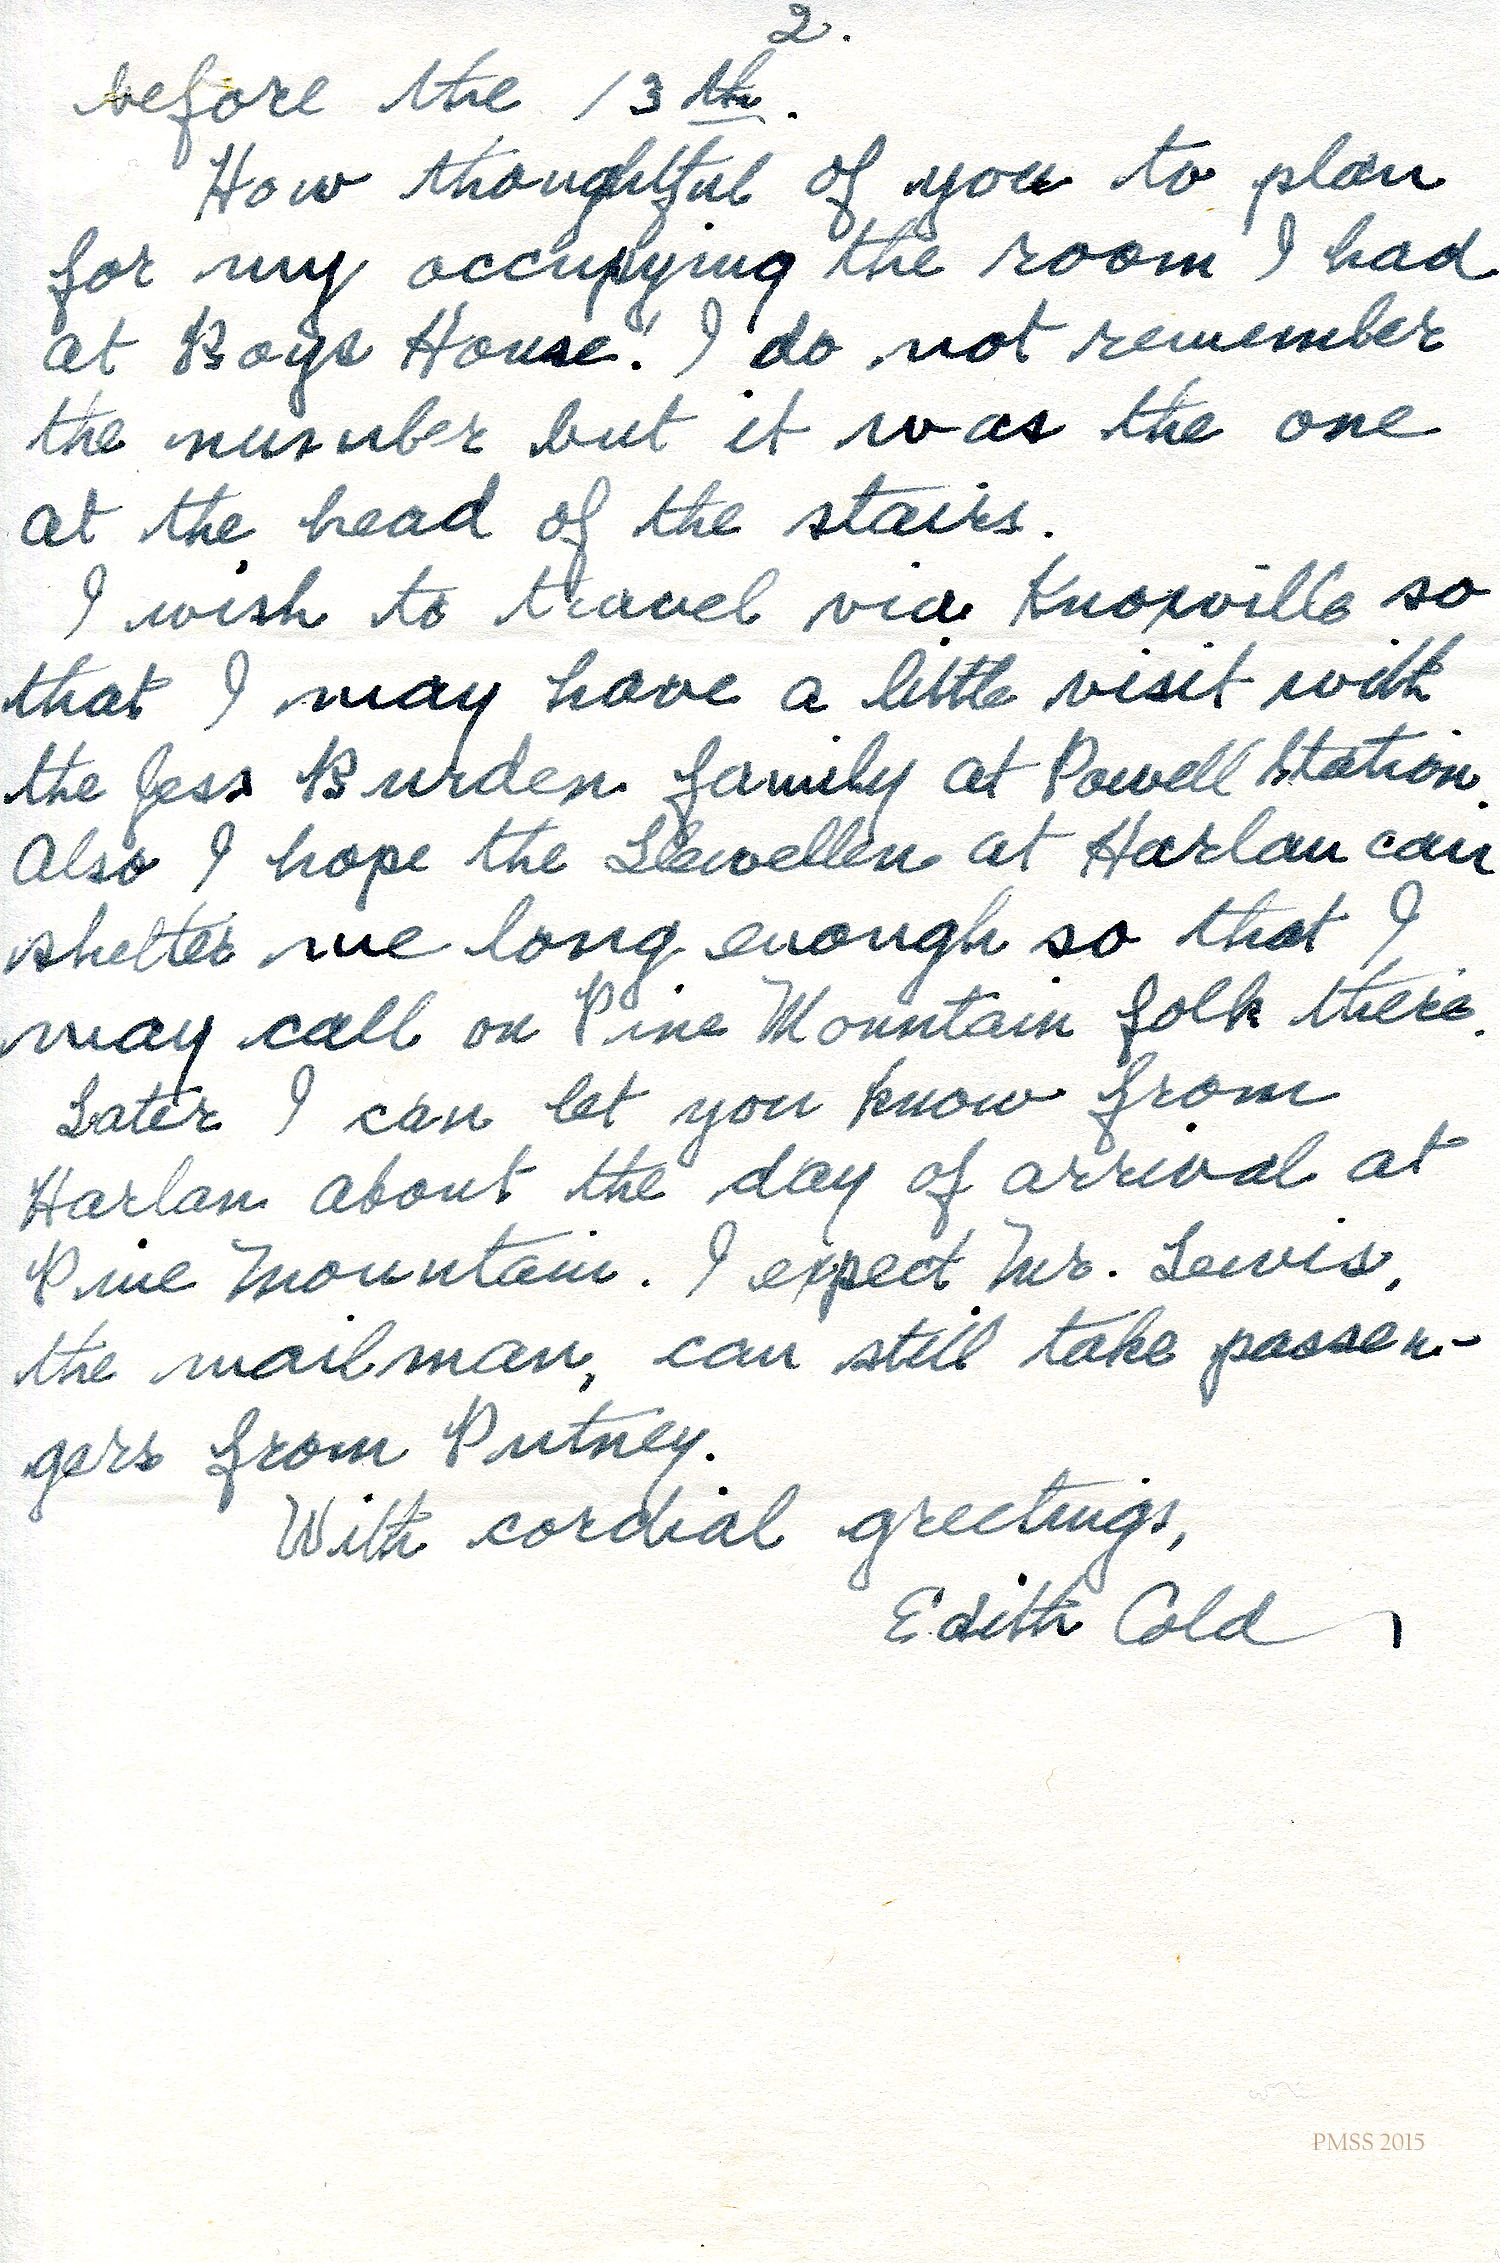 2.
before the 13th.
How thoughtful of you to plan
for my occupying the room I had
at Boys House! I do not remember
the number but it was the one
at the head of the stairs.
I wish to travel via Knoxville so
that I may have a little visit with
the Jess Burden family at Powell Station.
Also I hope the Llewellen at Harlan can
shelter me long enough so that I
may call on Pine Mountain folk there.
Later I can let you know from
Harlan about the day of arrival at
Pine Mountain. I expect Mr. Lewis,
the mailman, can still take passen-
gers from Putney.
With cordial greetings,
Edith Cold
PMSS 2015